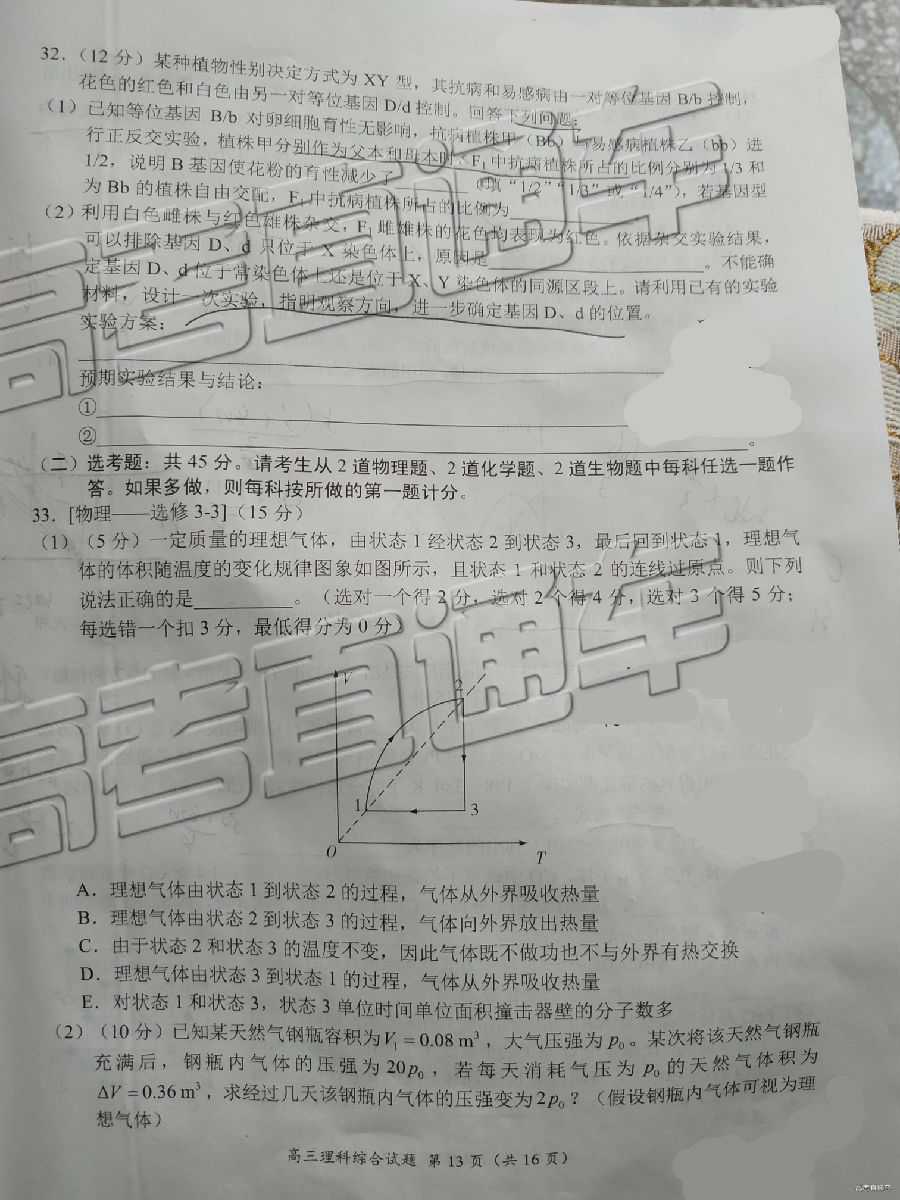 32．（12 分）某种植物性别决定方式为 XY 型，其抗病和易感病由一对等位基因 B/b 控制，
花色的红色和白色由另一对等位基因 D/d 控制。回答下列问题：
（1）已知等位基因 B/b 对卵细胞育性无影响，抗病植株甲（Bb）与易感病植株乙（bb）进
行正反交实验，植株甲分别作为父本和母本时，F₁ 中抗病植株所占的比例分别为 1/3 和
1/2，说明 B 基因使花粉的育性减少了________（填“1/2”“1/3”或“1/4”），若基因型
为 Bb 的植株自由交配，F₁ 中抗病植株所占的比例为________
（2）利用白色雌株与红色雄株杂交，F₁ 雌雄株的花色均表现为红色。依据杂交实验结果，
可以排除基因 D、d 只位于 X 染色体上，原因是________。不能确
定基因 D、d 位于常染色体上还是位于 X、Y 染色体的同源区段上。请利用已有的实验
材料，设计一次实验，指明观察方向，进一步确定基因 D、d 的位置。
实验方案：
预期实验结果与结论：
①________
②________。
（二）选考题：共 45 分。请考生从 2 道物理题、2 道化学题、2 道生物题中每科任选一题作
答。如果多做，则每科按所做的第一题计分。
33．[物理——选修 3-3]（15 分）
（1）（5 分）一定质量的理想气体，由状态 1 经状态 2 到状态 3，最后回到状态 1，理想气
体的体积随温度的变化规律图象如图所示，且状态 1 和状态 2 的连线过原点。则下列
说法正确的是________。（选对一个得 2 分，选对 2 个得 4 分，选对 3 个得 5 分；
每选错一个扣 3 分，最低得分为 0 分）
V
2
1
3
O
T
A．理想气体由状态 1 到状态 2 的过程，气体从外界吸收热量
B．理想气体由状态 2 到状态 3 的过程，气体向外界放出热量
C．由于状态 2 和状态 3 的温度不变，因此气体既不做功也不与外界有热交换
D．理想气体由状态 3 到状态 1 的过程，气体从外界吸收热量
E．对状态 1 和状态 3，状态 3 单位时间单位面积撞击器壁的分子数多
（2）（10 分）已知某天然气钢瓶容积为 V₁ = 0.08 m³，大气压强为 p₀。某次将该天然气钢瓶
充满后，钢瓶内气体的压强为 20p₀，若每天消耗气压为 p₀ 的天然气体积为
ΔV = 0.36 m³，求经过几天该钢瓶内气体的压强变为 2p₀？（假设钢瓶内气体可视为理
想气体）
高三理科综合试题 第 13 页（共 16 页）
高考直通车
高考直通车
高考直通车